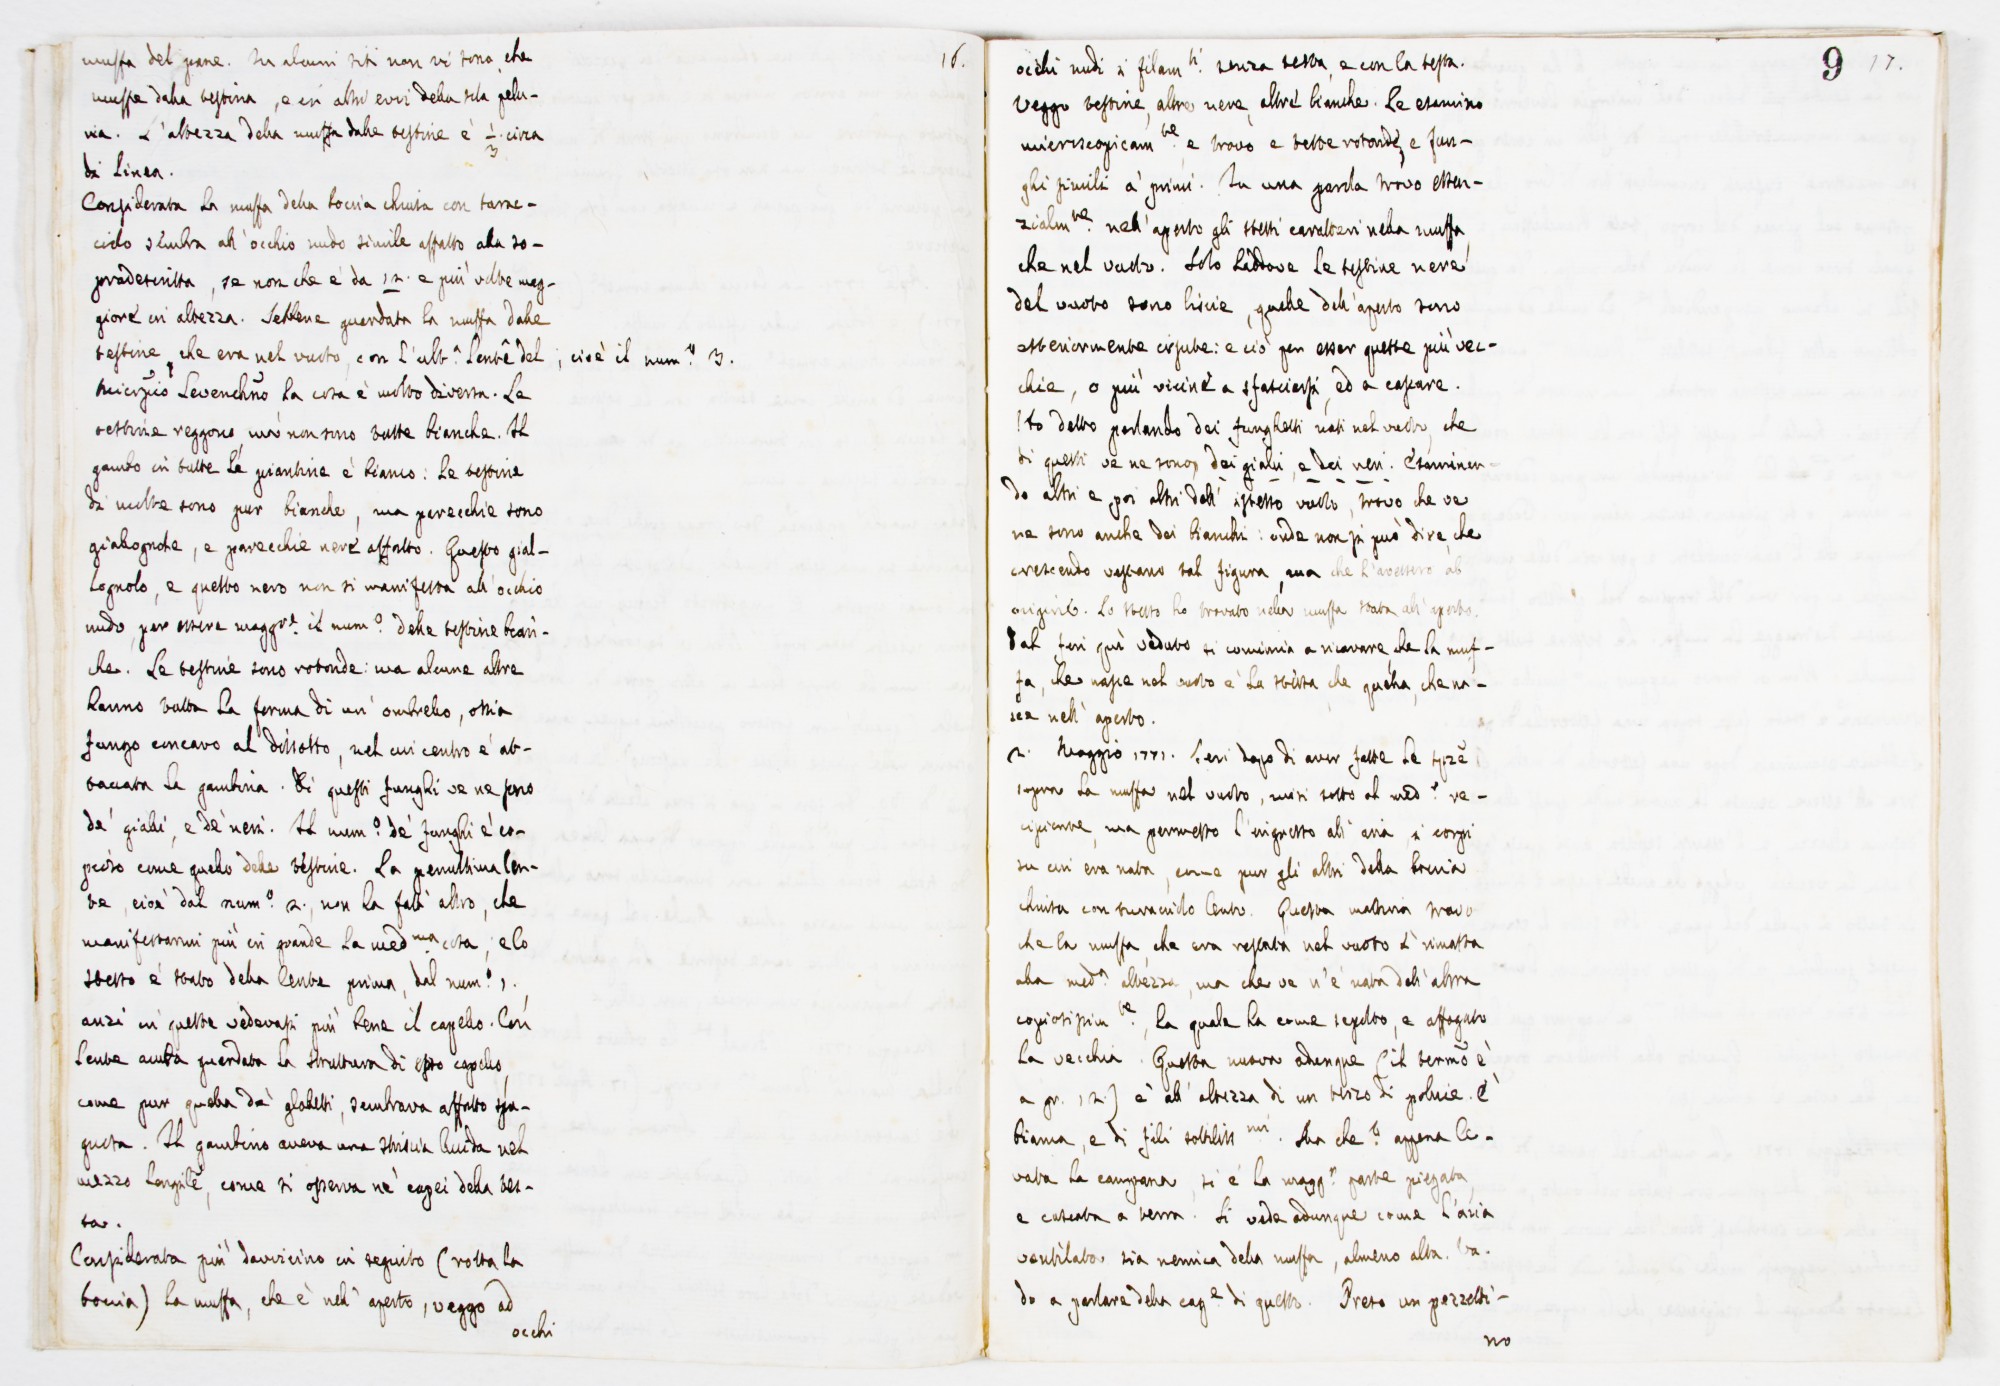 16.
muffa del pane. In alcuni siti non vi sono, che
muffe dalla testina, e in altri evvi della sola pelu-
ria. L'altezza della muffa dalle testine è 1/3 circa
di Linea.
Considerata la muffa della boccia chiusa con turac-
ciolo sembra all'occhio nudo simile affatto alla so-
pradescritta, se non che è da 12. e più volte mag-
giore in altezza. Sebbene guardata la muffa dalle
testine, che era nel vuoto, con l'ult.ª Lente del, cioè il num.º 3.
Micrpio Levenchno la cosa è molto diversa. Le
testine reggono, mà non sono tutte bianche. Il
gambo in tutte le piantine è bianco: le testine
di molte sono pur bianche, ma parecchie sono
giallognole, e parecchie nere affatto. Questo gial-
lognolo, e questo nero non si manifesta all'occhio
nudo, per essere maggre. il num.º delle testine bian-
che. Le testine sono rotonde: ma alcune altre
hanno tutta la forma di un'ombrello, ossia
fungo concavo al dissotto, nel cui centro è at-
taccata la gambina. Di questi funghi ve ne sono
de' gialli, e de' neri. Il num.º de' funghi è co-
pioso come quello delle testine. La penultima len-
te, cioè dal num.º 2., non ha fatt'altro, che
manifestarmi più in grande la medma cosa, e lo
stesso è stato della lente prima, dal num.º 1.
anzi in queste vedevasi più bene il capello. Con
lente acuta guardata la struttura di esso capello,
come pur quella de' globetti, sembrava affatto spu-
gnosa. Il gambino aveva una striscia lucida nel
mezzo longitle, come si osserva ne' capei della tes-
ta.
Considerata più davvicino in seguito (rotta la
boccia) la muffa, che è nell'aperto, veggo ad
occhi
9 17.
occhi nudi i filamti. senza testa, e con la testa.
Veggo testine, altre nere, altre bianche. Le esamino
microscopicamte. e trovo e teste rotonde, e fun-
ghi simili a' primi. In una parola trovo essen-
zialmte. nell'aperto gli stessi caratteri nella muffa,
che nel vuoto. Solo laddove le testine nere
del vuoto sono liscie, quelle dell'aperto sono
esteriormente irsute: e ciò per esser queste più vec-
chie, o più vicine a sfasciarsi, ed a cascare.
Ho detto parlando dei funghetti nati nel vuoto, che
di questi ve ne sono, dei gialli, e dei neri. Esaminan-
do altri e poi altri dell'istesso vuoto, trovo che ve
ne sono anche dei bianchi: onde non si può dire, che
crescendo vestano tal figura, ma che l'avessero ab
origine. Lo stesso ho trovato nella muffa stata all'aperto.
Dal fin quì veduto si comincia a ricavare, che la muf-
fa, che nasce nel vuoto è la stessa che quella, che na-
sce nell'aperto.
2. Maggio 1771. Ieri dopo di aver fatte le spze
sopra la muffa nel vuoto, misi sotto al med.º re-
cipiente, ma permesso l'ingresso all'aria, i corpi
su cui era nata, come pur gli altri della boccia
chiusa con turacciolo lento. Questa mattina trovo
che la muffa, che era restata nel vuoto è rimasta
alla med.ª altezza, ma che ve n'è nata dell'altra
copiosissimte., la quale ha come sepolto, e affogato
la vecchia. Questa nuova adunque (il termo è
a gr. 12.) è all'altezza di un terzo di pollice. È
bianca, e di fili sottilissmi. Ma che? appena le-
vata la campana, si è la maggr. parte piegata,
e cascata a terra. Si vede adunque come l'aria
ventilata sia nemica della muffa, almeno alta. Va-
do a parlare della cage. di questo. Preso un pezzetti-
no